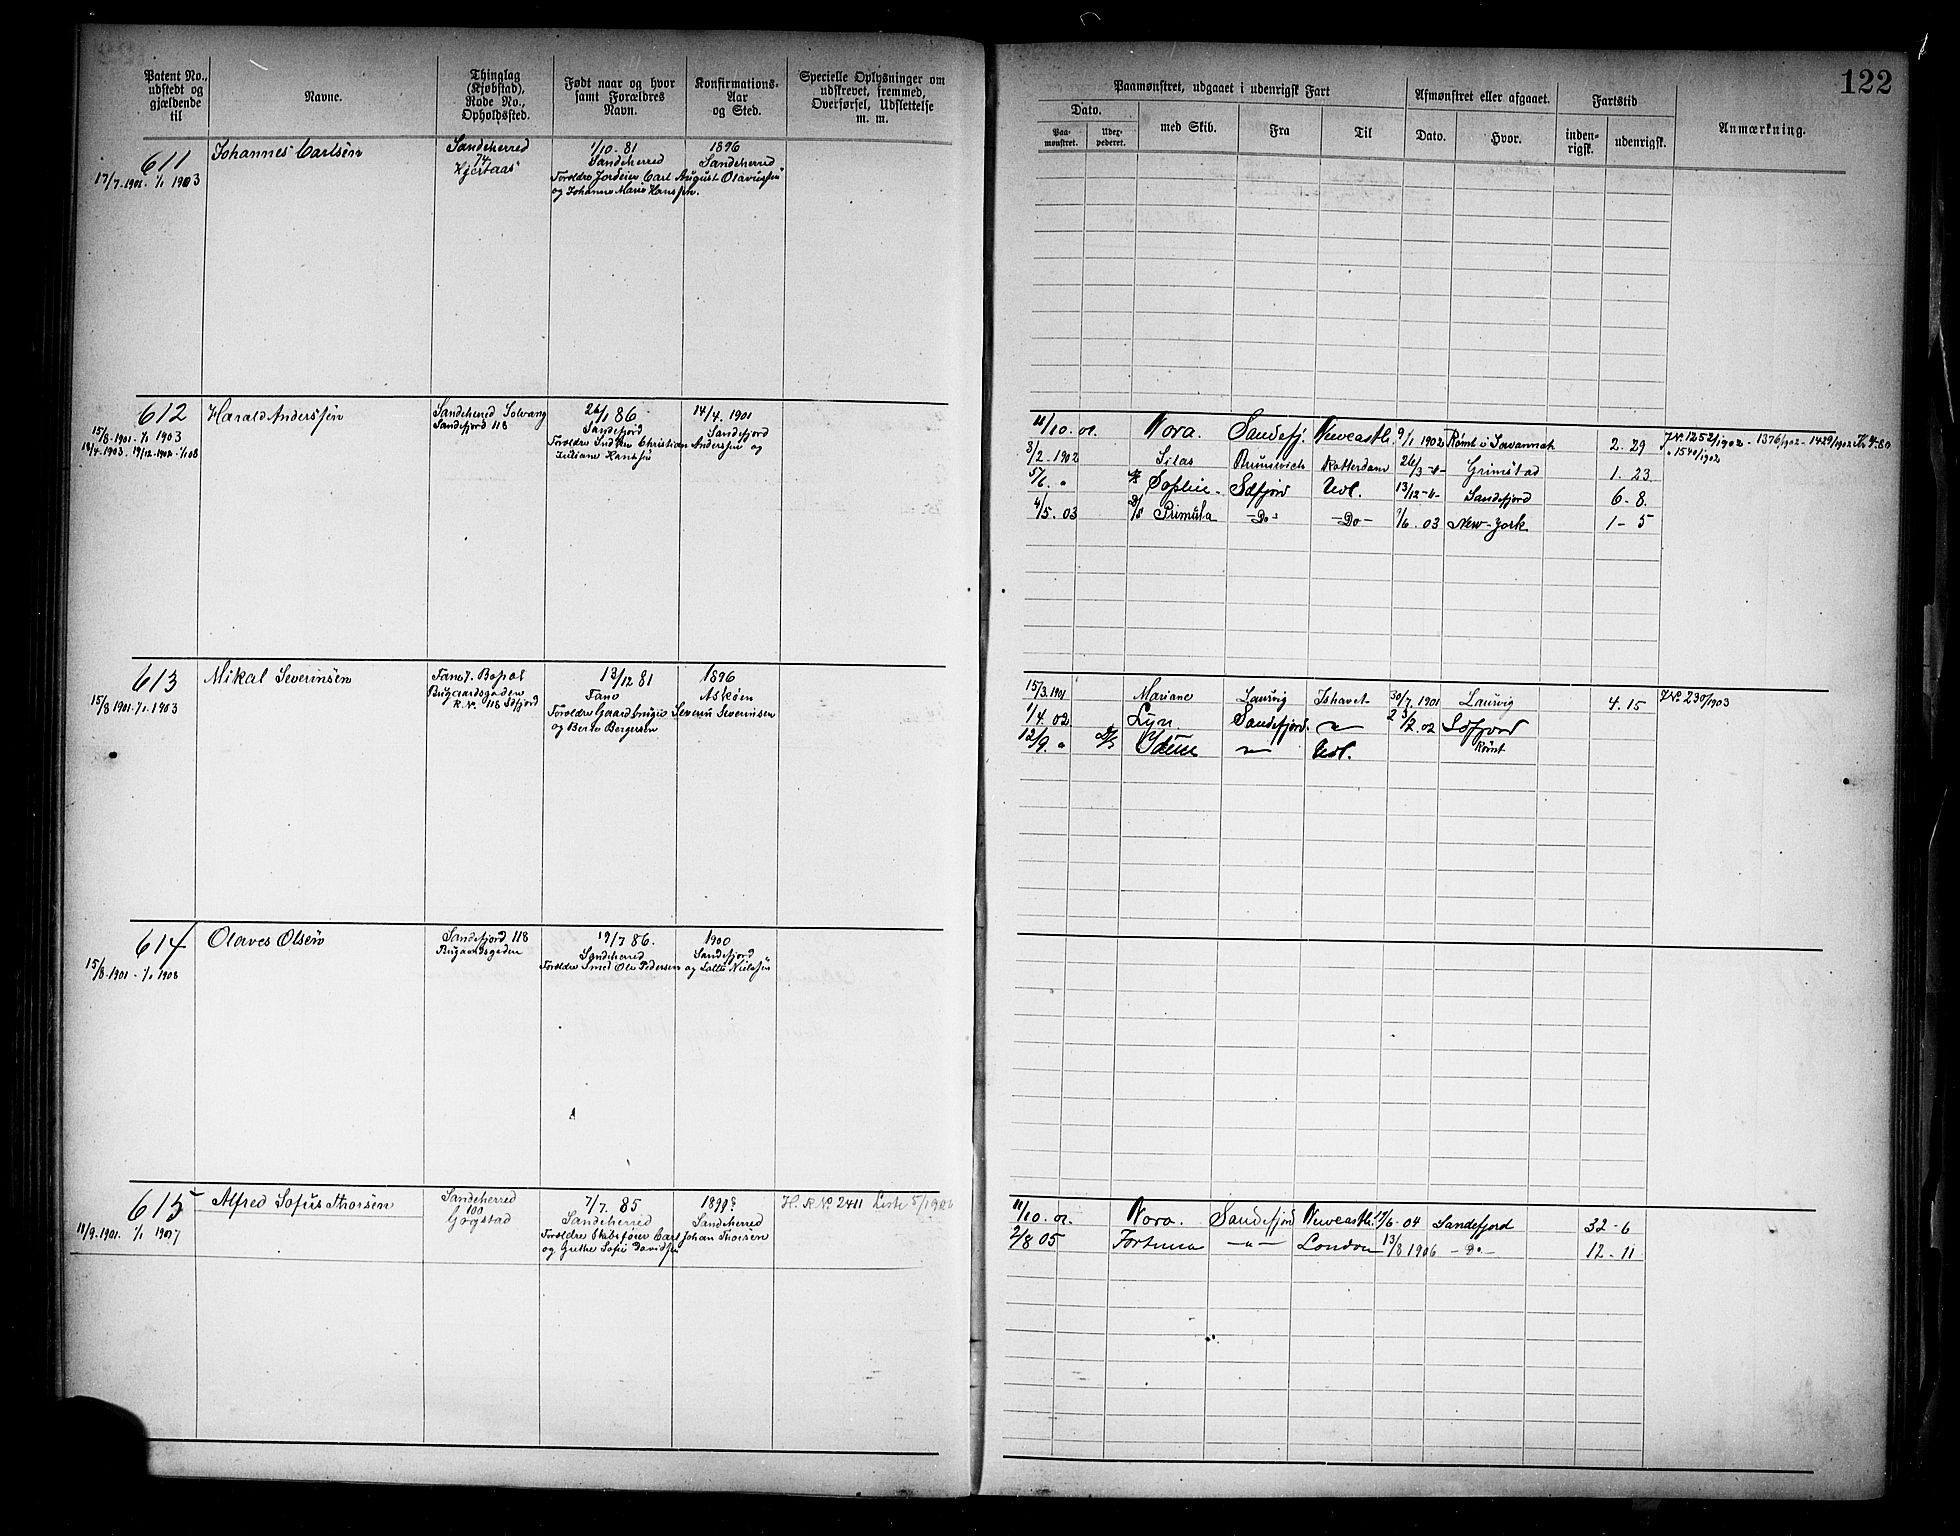 122
Patent No., udstedt og gjældende til
Navne.
Thinglag (Kjøbstad), Rode No., Opholdssted.
Født naar og hvor samt Forældres Navn.
Konfirmations-Aar og Sted.
Specielle Oplysninger om udstrevet, fremmed, Overførsel, Udslettelse m. m.
Paamønstret, udgaaet i udenrigsk Fart
Afmønstret eller afgaaet.
Fartstid
Anmærkning.
Dato.
med Skib.
Fra
Til
Dato.
Hvor.
inden-rigsk.
udenrigsk.
Paa-mønstret.
611
Johannes Carlsen
Sandeherred
74
Hjertaas
1/10 - 81
Sandeherred
Forældre Jordeier Carl August Olaviussen
og Johanne Marie Hanssen.
1896
Sandeherred
17/7-1901- 1/1 1903
612
Harald Anderssen
Sandeherred Solvang
Sandefjord 118
26/1 86
Sandefjord
Christian Anderssen og
Juliane Hanssen
14/4. 1901
Sandefjord
15/8-1901-1/1 1903
11/10. 01. Nora. Sandefj. Newcastle 9/1 1902 Rømt i Savannah 2. 29
J.No. 1252/1902 - 1376/1902 - 1429/1902
1540/1902
3/2. 1902 Silas Brunsvick Rotterdam 26/3 -"- Grimstad 1. 23
5/6. " Sophie Sdfjord Udl. 13/12 -"- Sandefjord 6 - 8.
4/5. 03 Primula -Do- -Do- 9/6. 03 New-York 1 - 5
613
Mikal Severinsen
Fano
Bugaardsgaden
R.No. 118 Sdfjord
13/12 81
Fano
Forældre Gaardbruger Severin Severinsen
og Berte Bergersen
1896
Askøen
15/8 1901-1/1. 1903
15/3. 1901 Mariane Laurvig Ishavet 30/7. 1901 Laurvig 4. 15
J.No. 230/1903
1/4. 02 Lyn Sandefjord. 02 Sdfjord
12/9. " Idun Udl. Rømt
614
Olaves Olsen
Sandefjord 118
Bugaardsgaden
19/7 86.
Sandeherred
Forældre Smed Ole Pedersen og Lalla Nielsen
1900
Sandefjord
15/8-1901 - 1/1 1908
615
Alfred Sofus Thorsen
Sandeherred
100
Gogstad
7/7. 85
Sandeherred
Forældre Skibsfører Carl Johan Thorsen
og Grethe Sofie Davidsen
1899
Sandeherred
H. R. No. 2411 Liste 5/1906
11/9. 1901. 1/1 1907
11/10. 01. Nora. Sandefjord Newcastle 17/6-04 Sandefjord 32 - 6
2/8 05 Fortuna -"- London 13/8 1906 -Do- 12 - 11